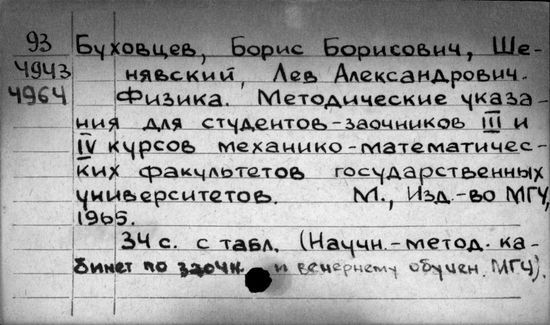 93 Буховцев, Борис Борисович, Ше-
4943 нявский, Лев Александрович.
4964 Физика. Методические указа-
ния для студентов-заочников III и
IV курсов механико-математичес-
ких факультетов государственных
университетов. М., Изд.-во МГУ,
1965.
34 с. с табл. (Научн.-метод. ка-
бинет по заочн. и вечернему обучен. МГУ).